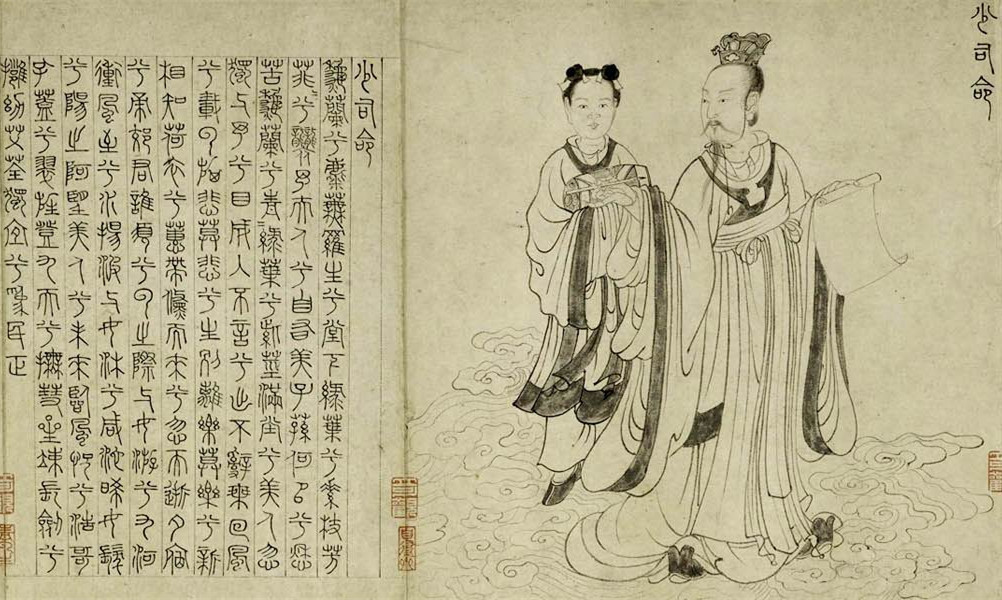 少司命
少司命
穐蘭兮麋蕪羅生兮堂下綠葉兮素枝芳
菲兮襲予夫人兮自有美子蓀何以兮愁
苦穐蘭兮青綠葉兮紫莖滿堂兮美人忽
獨与予兮目成入不言兮出不辭椉回風
兮載云旗悲莫悲兮生別離樂莫樂兮新
相知荷衣兮蕙帶儵而來兮忽而逝夕宿
兮帝郊君誰須兮云之際与女游兮九河
衝風至兮水揚波与女沐兮咸池晞女髮
兮陽之阿望美人兮未來臨風怳兮浩哥
孔蓋兮翠旌登九天兮撫彗星竦長劍兮
擁幼艾荃獨宜兮爲民正